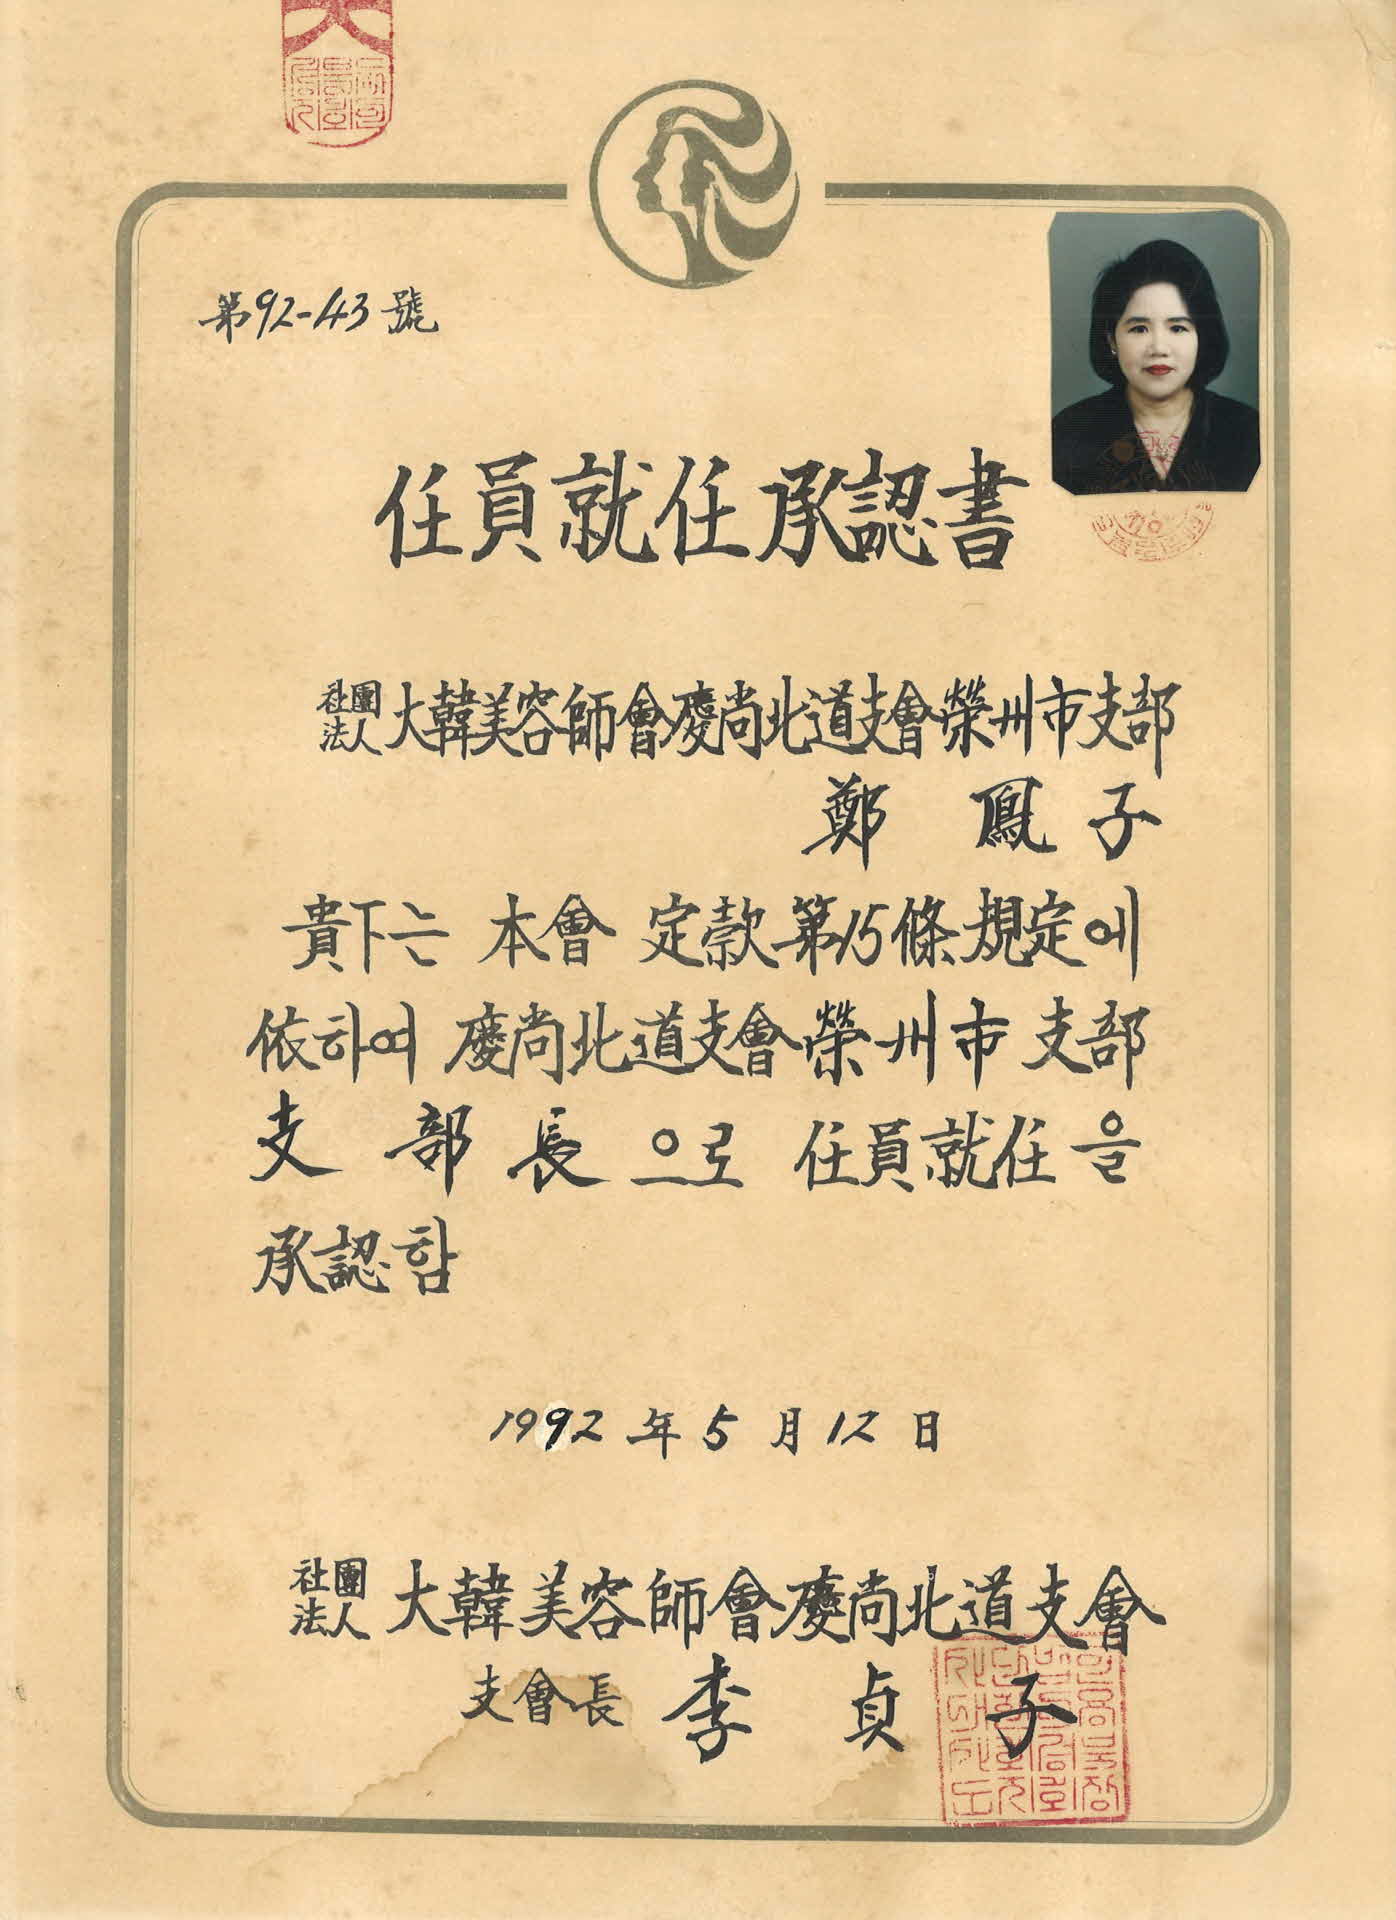 第92-43號
任員就任承認書
社團法人 大韓美容師會慶尚北道支會榮州市支部
鄭鳳子
貴下는 本會 定款第15條規定에
依하여 慶尚北道支會榮州市支部
支部長으로 任員就任을
承認함
1992年5月12日
社團法人 大韓美容師會慶尚北道支會
支會長 李貞子